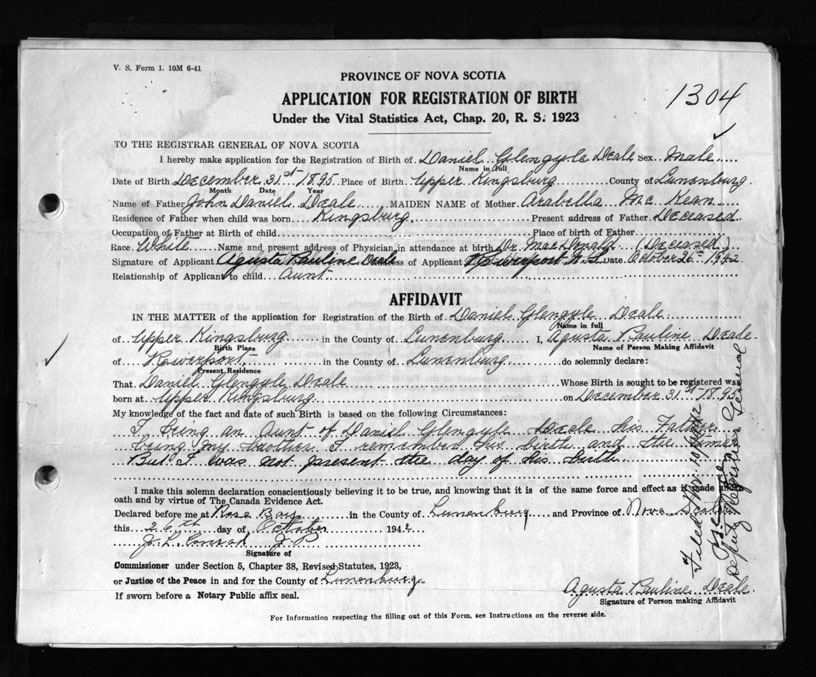 V. S. Form 1. 10M 6-41
PROVINCE OF NOVA SCOTIA
1304
APPLICATION FOR REGISTRATION OF BIRTH
Under the Vital Statistics Act, Chap. 20, R. S. 1923
TO THE REGISTRAR GENERAL OF NOVA SCOTIA
I hereby make application for the Registration of Birth of Daniel Glengyle Deale Sex Male
Name in full
Date of Birth December 31st 1895 Place of Birth Upper Kingsburg County of Lunenburg
Month Date Year
Name of Father John Daniel Deale MAIDEN NAME of Mother Arabella Mc Kean
Residence of Father when child was born Kingsburg Present address of Father Deceased
Occupation of Father at Birth of child Place of birth of Father
Race White Name and present address of Physician in attendance at birth Dr. MacDonald (Deceased)
Signature of Applicant Agusta Pauline Deale Address of Applicant Riverport N.S. Date October 26th 1942
Relationship of Applicant to child Aunt
AFFIDAVIT
IN THE MATTER of the application for Registration of the Birth of Daniel Glengyle Deale
Name in full
of Upper Kingsburg in the County of Lunenburg I, Agusta Pauline Deale
Birth Place Name of Person Making Affidavit
of Riverport in the County of Lunenburg do solemnly declare:
Present Residence
That Daniel Glengyle Deale Whose Birth is sought to be registered was
born at Upper Kingsburg on December 31st 1895
My knowledge of the fact and date of such Birth is based on the following Circumstances:
I being an Aunt of Daniel Glengyle Deale his Father
being my brother I remember his birth and the time
But I was not present the day of his birth
I make this solemn declaration conscientiously believing it to be true, and knowing that it is of the same force and effect as if made under
oath and by virtue of The Canada Evidence Act.
Declared before me at Rose Bay in the County of Lunenburg and Province of Nova Scotia
this 26th day of October 1942
J. L. Conrad J P
Signature of
Commissioner under Section 5, Chapter 38, Revised Statutes, 1923,
or Justice of the Peace in and for the County of Lunenburg
If sworn before a Notary Public affix seal.
Agusta Pauline Deale
Signature of Person making Affidavit
For Information respecting the filling out of this Form, see Instructions on the reverse side.
Filed Nov. 10
Deputy Registrar General